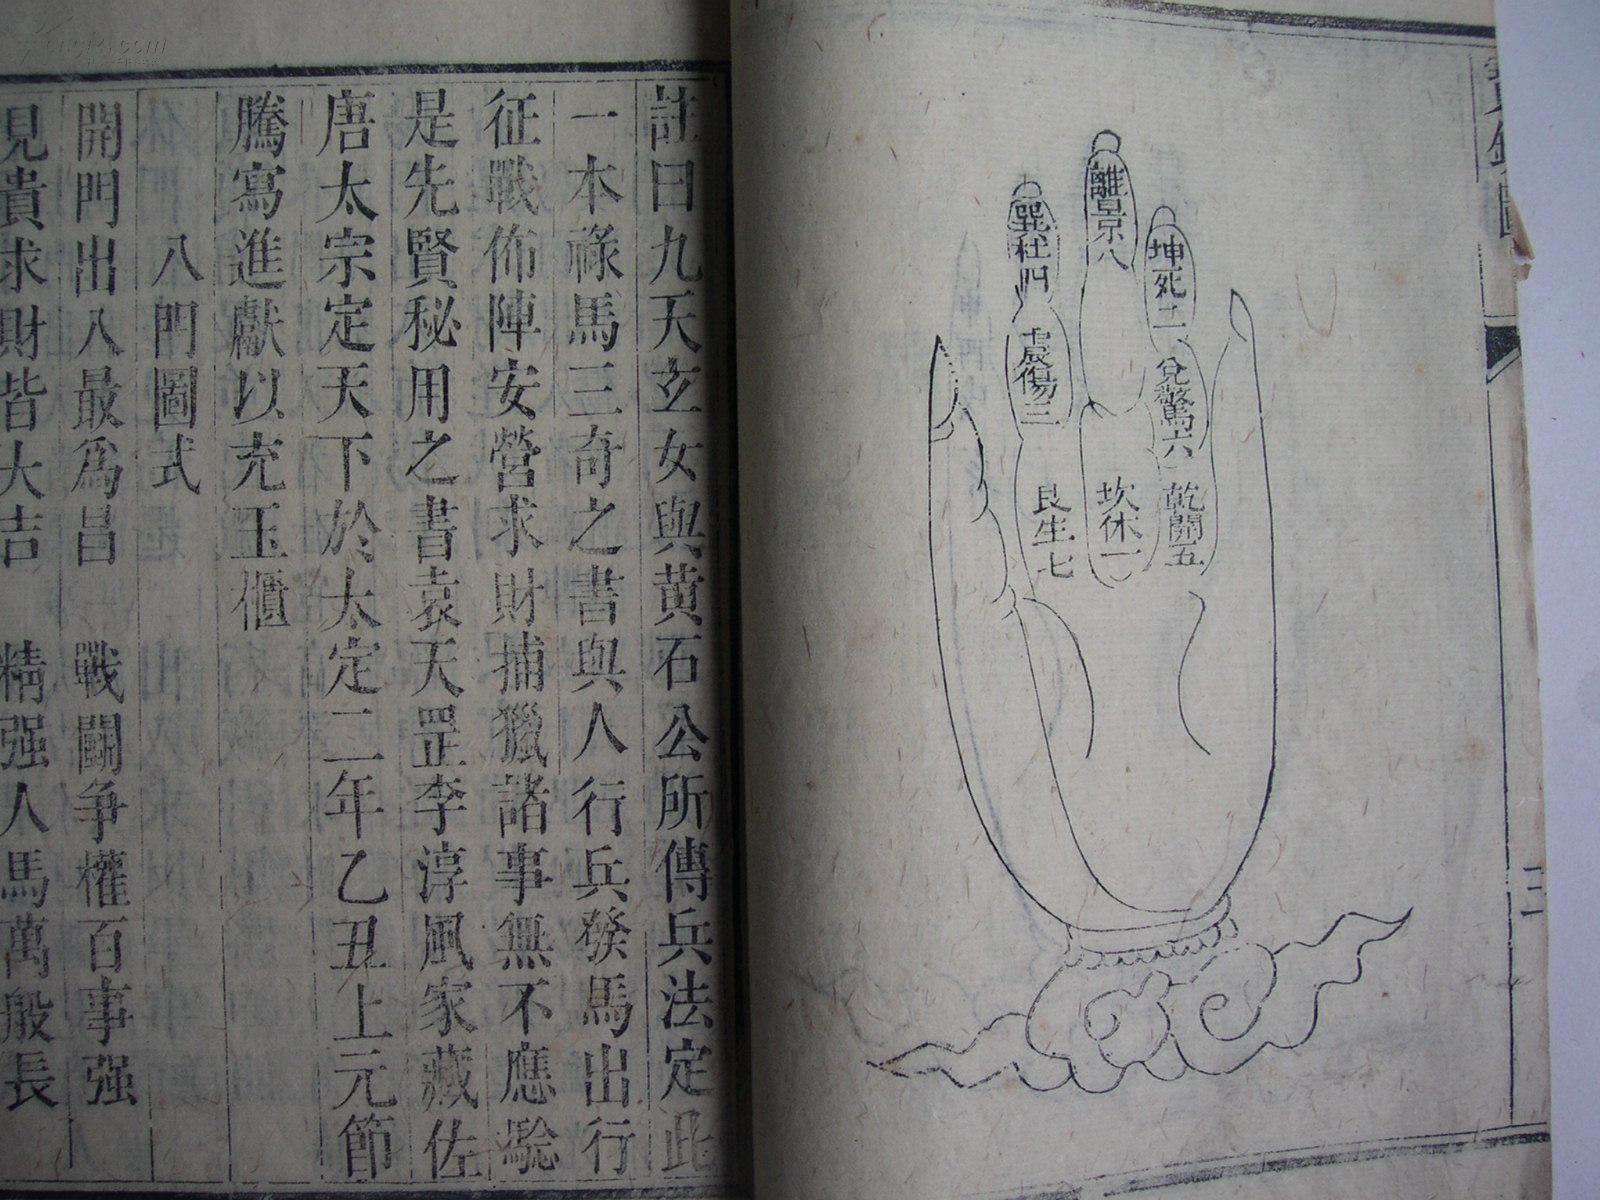 離景八
巽杜四
坤死二
震傷三
兌驚六
艮生七
坎休一
乾開五
註曰九天玄女與黃石公所傳兵法定此
一本祿馬三奇之書與人行兵發馬出行
征戰佈陣安營求財捕獵諸事無不應驗
是先賢秘用之書袁天罡李淳風家藏佐
唐太宗定天下於太定二年乙丑上元節
騰寫進獻以充玉櫃
八門圖式
開門出入最爲昌 戰鬬争權百事强
見貴求財皆大吉 精强人馬萬般長